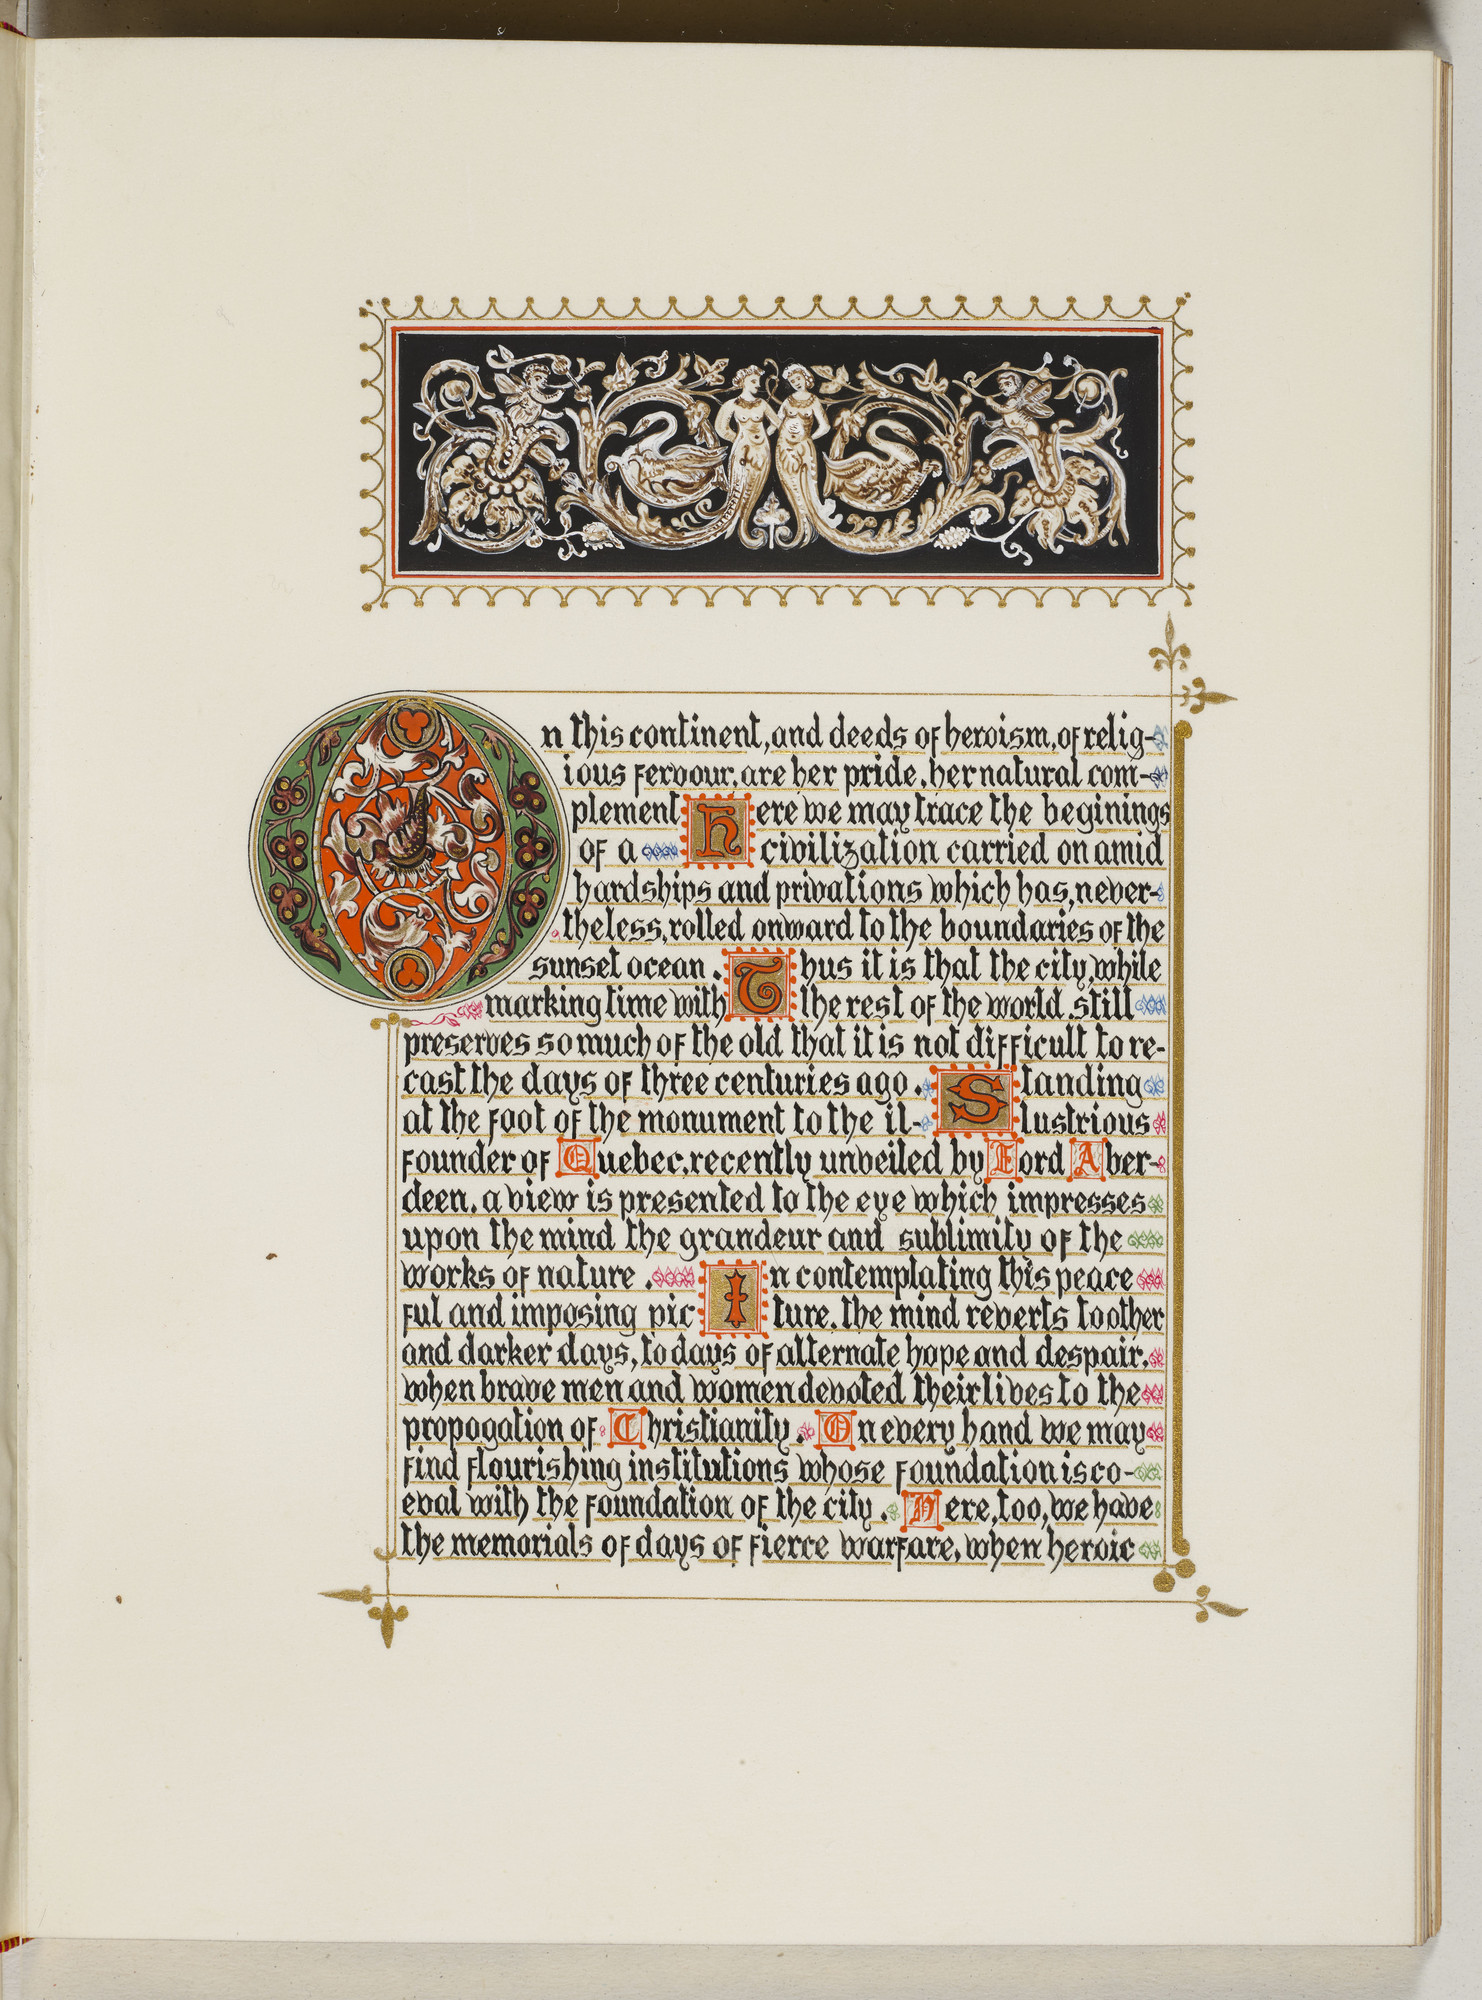 On this continent, and deeds of heroism, of relig-
ious fervour, are her pride, her natural com-
plement Here we may trace the beginings
of a civilization carried on amid
hardships and privations which has, never-
theless, rolled onward to the boundaries of the
sunset ocean. Thus it is that the city, while
marking time with the rest of the world, still
preserves so much of the old that it is not difficult to re-
cast the days of three centuries ago. Standing
at the foot of the monument to the il- lustrious
founder of Quebec, recently unveiled by Lord Aber-
deen, a view is presented to the eye which impresses
upon the mind the grandeur and sublimity of the
works of nature. In contemplating this peace
ful and imposing pic ture, the mind reverts to other
and darker days, to days of alternate hope and despair,
when brave men and women devoted their lives to the
propogation of Christianity. On every hand we may
find flourishing institutions whose foundation is co-
eval with the foundation of the city. Here, too, we have
the memorials of days of fierce warfare, when heroic